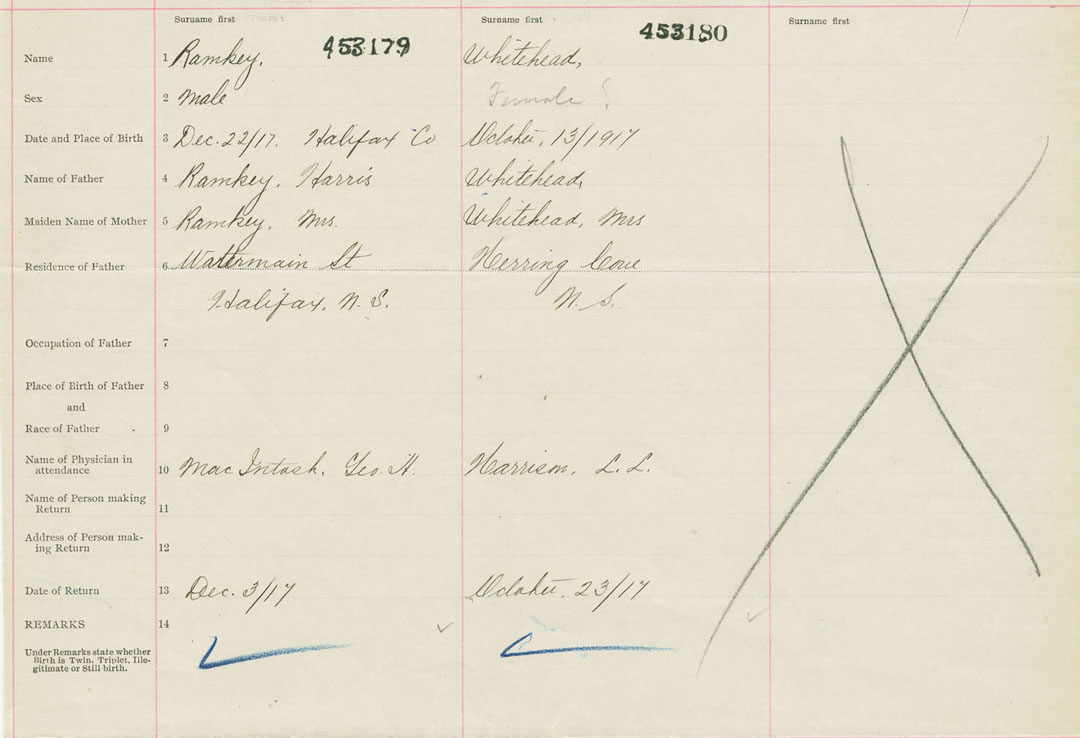 Surname first Surname first Surname first
453179 453180
Name 1 Ramkey, Whitehead,
Sex 2 Male Female ?
Date and Place of Birth 3 Dec. 22/17. Halifax Co October, 13/1917
Name of Father 4 Ramkey, Harris Whitehead,
Maiden Name of Mother 5 Ramkey, Mrs. Whitehead, Mrs
Residence of Father 6 Watermain St Herring Cove
Halifax, N.S. N.S.
Occupation of Father 7
Place of Birth of Father 8
and
Race of Father 9
Name of Physician in
attendance 10 MacIntosh, Geo. H. Harrison, L.L.
Name of Person making
Return 11
Address of Person mak-
ing Return 12
Date of Return 13 Dec. 3/17 October, 23/17
REMARKS 14
Under Remarks state whether
Birth is Twin, Triplet, Ille-
gitimate or Still birth.